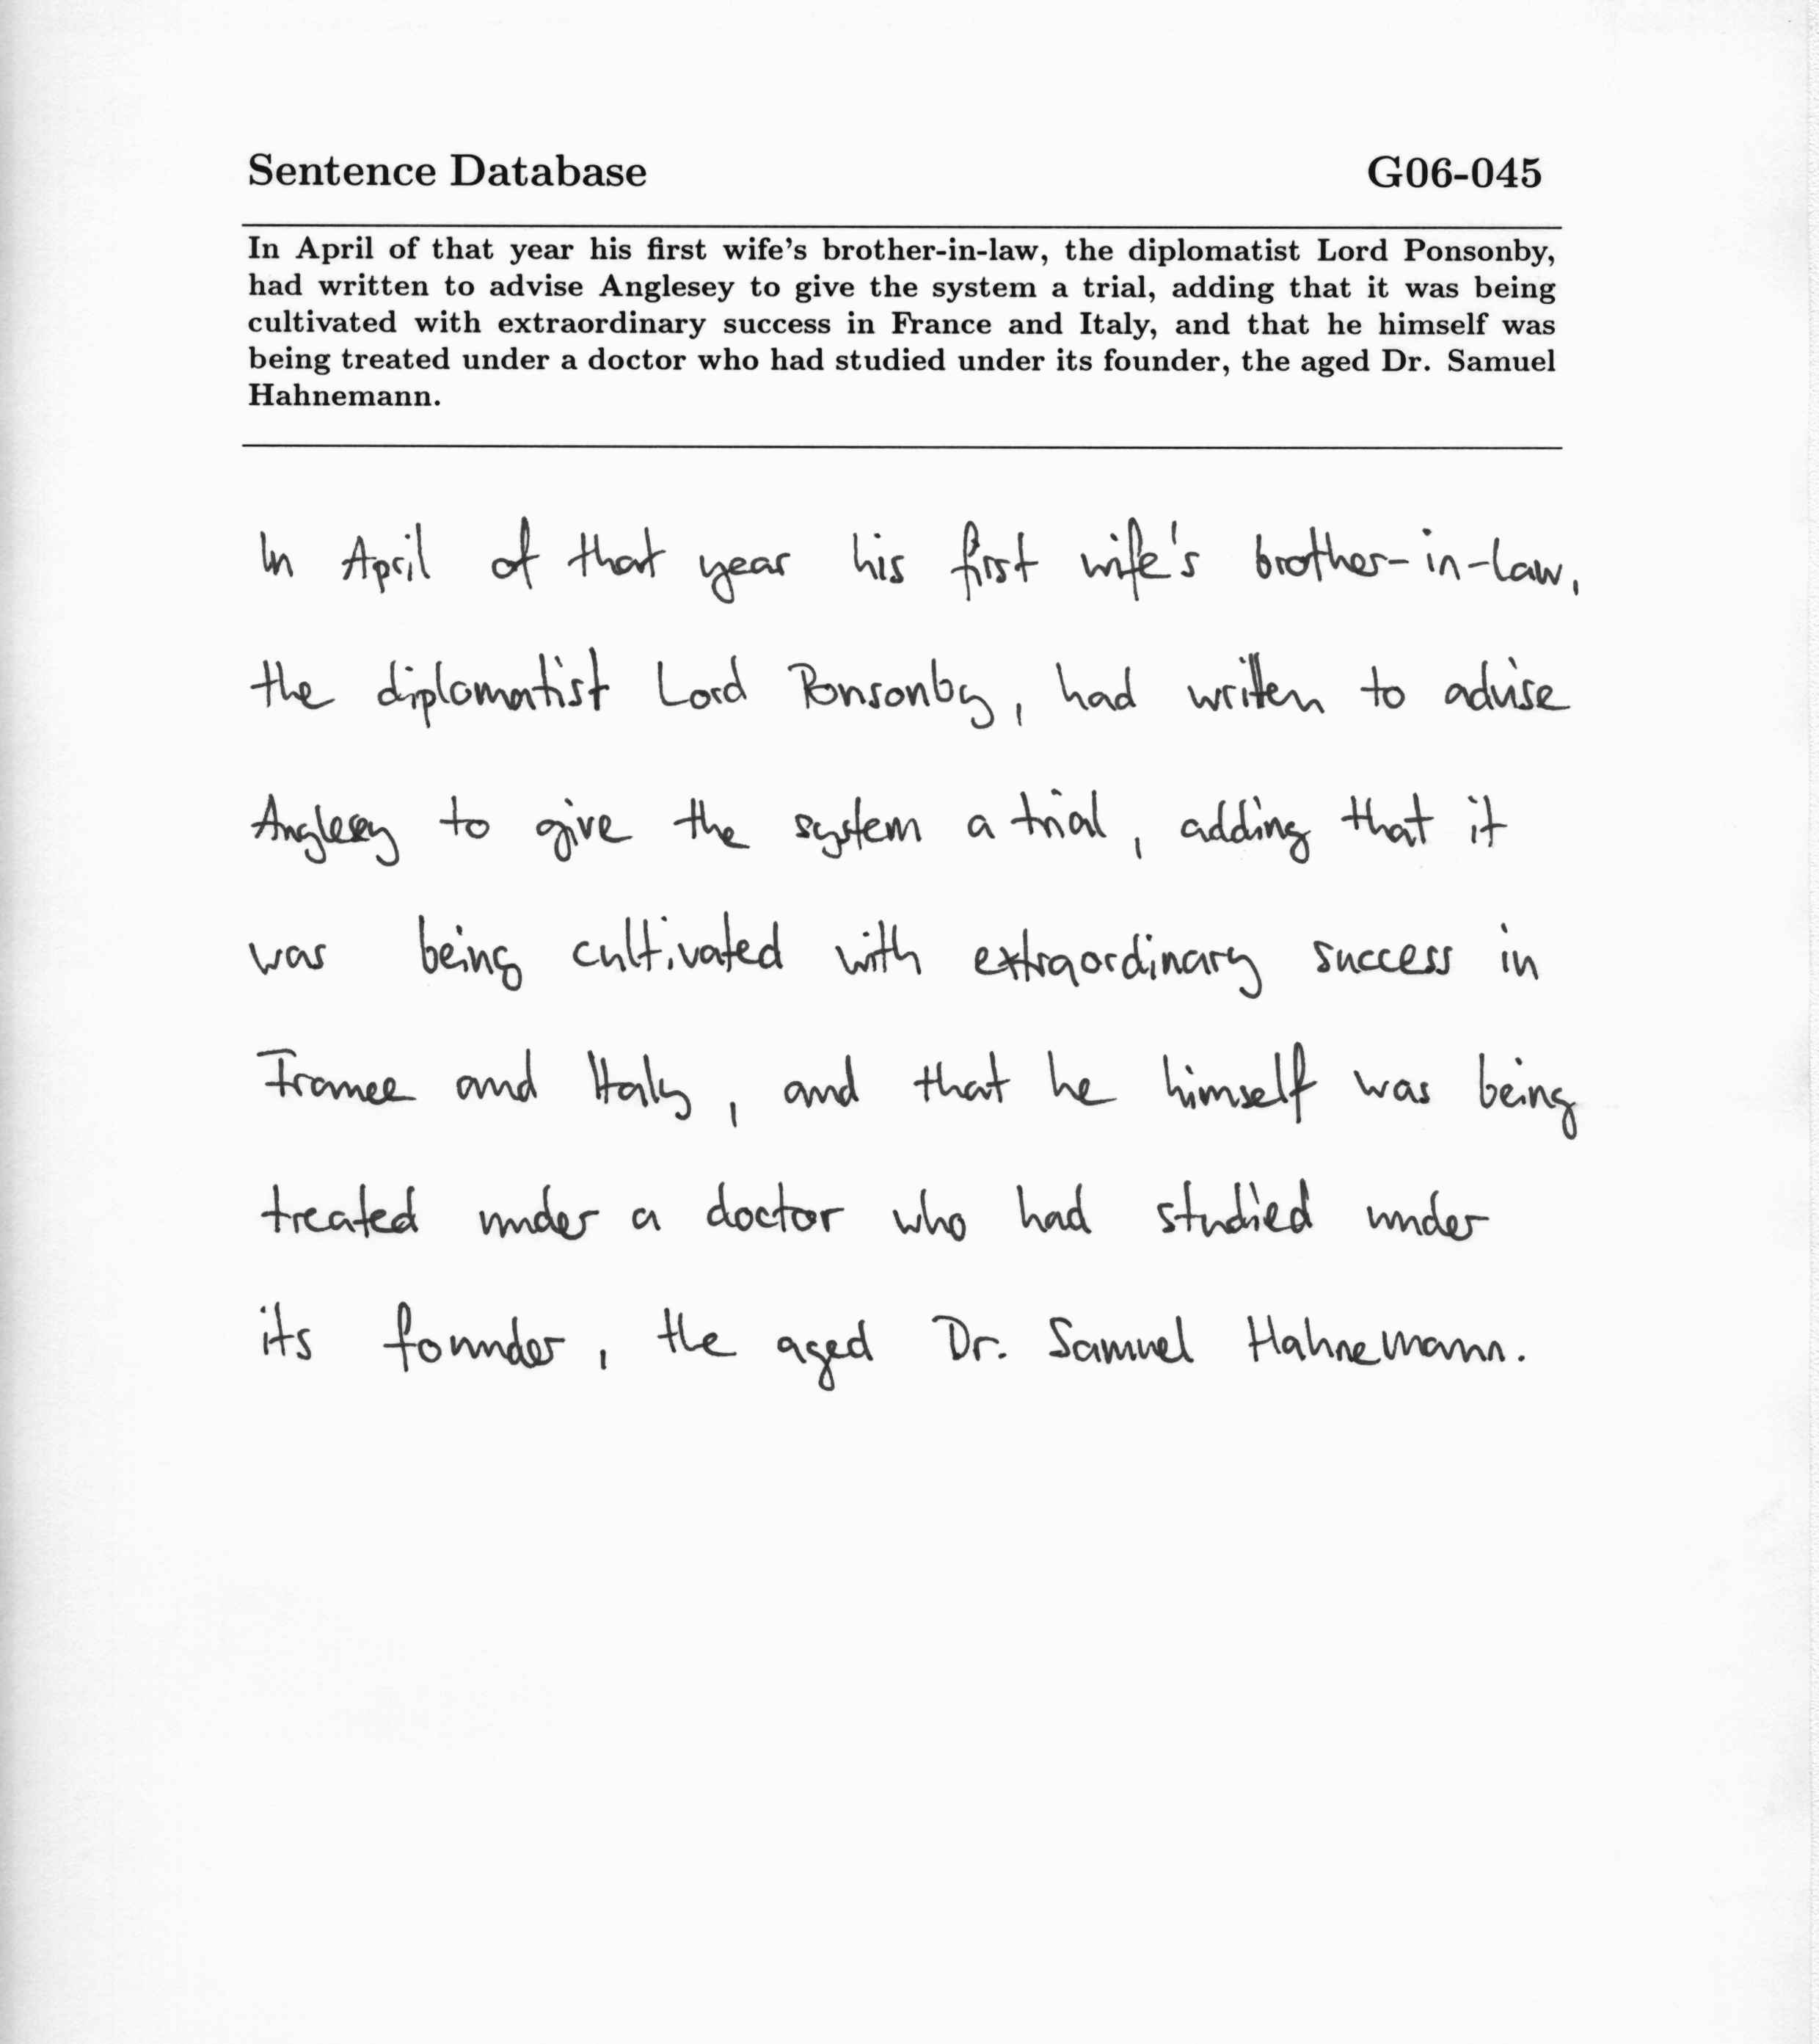 Sentence Database G06-045
In April of that year his first wife's brother-in-law, the diplomatist Lord Ponsonby,
had written to advise Anglesey to give the system a trial, adding that it was being
cultivated with extraordinary success in France and Italy, and that he himself was
being treated under a doctor who had studied under its founder, the aged Dr. Samuel
Hahnemann.
In April of that year his first wife's brother-in-law,
the diplomatist Lord Ponsonby, had written to advise
Anglesey to give the system a trial, adding that it
was being cultivated with extraordinary success in
France and Italy, and that he himself was being
treated under a doctor who had studied under
its founder, the aged Dr. Samuel Hahnemann.